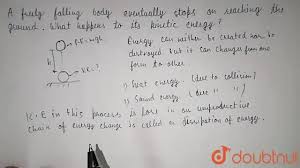 A freely falling body eventually stops on reaching the
ground. What happens to its kinetic energy?
P.E = mgh
Energy can neither be created nor be
destroyed but it is can changes from one
form to other
h
K.E = ?
1) Heat energy (due to collision)
2) Sound energy (due " ")
K.E in this process is in an unproductive
chain of energy change is called a dissipation of energy.
doubtnut